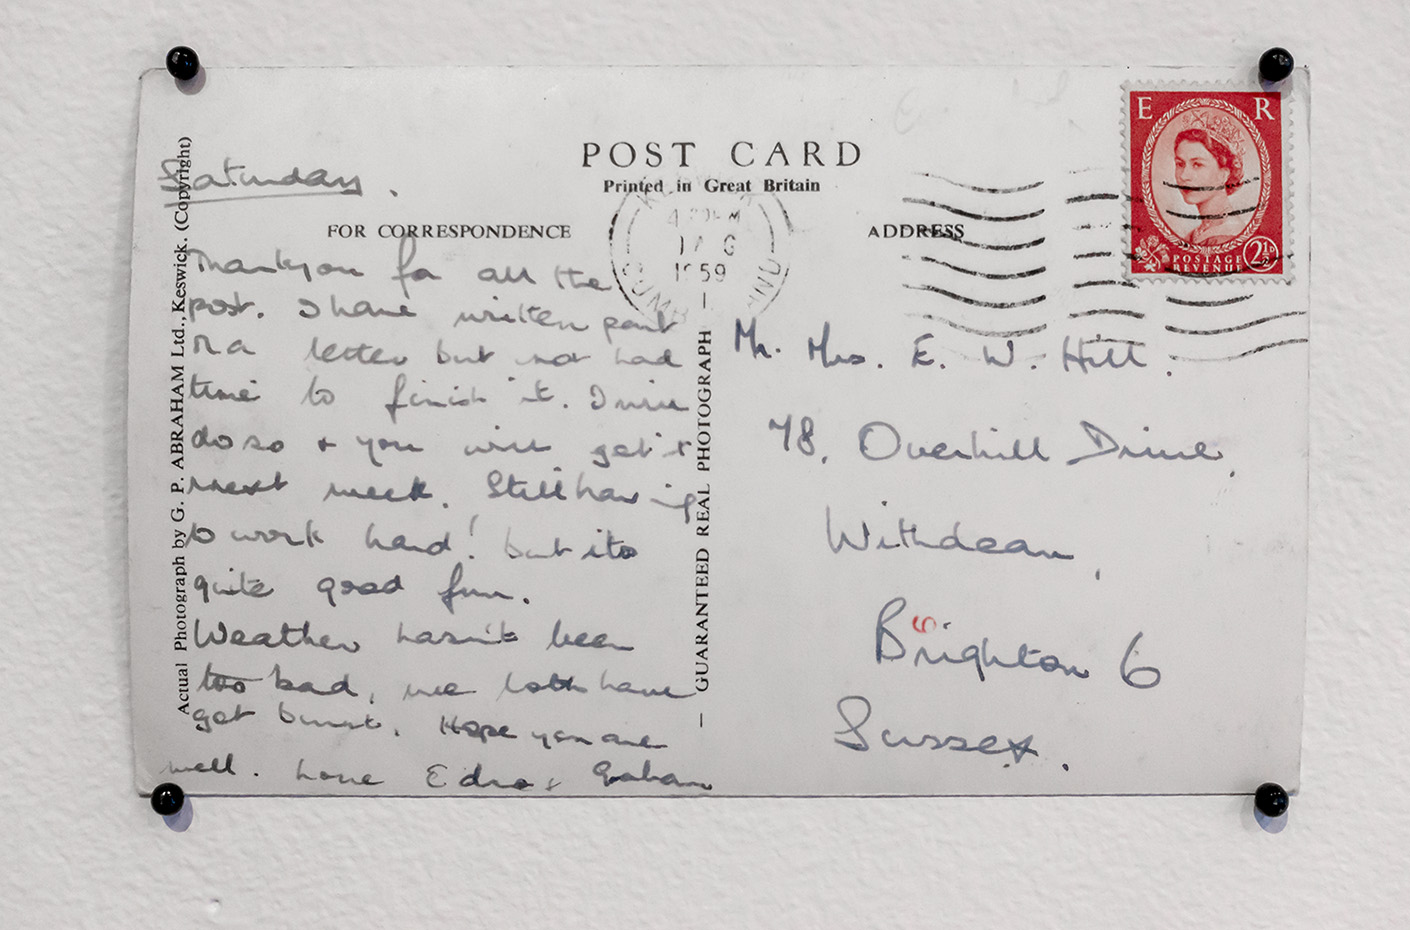 POST CARD
Printed in Great Britain
FOR CORRESPONDENCE
ADDRESS
Saturday.
Thankyou for all the
post. I have written part
of a letter but not had
time to finish it. I will
do so & you will get it
next week. Still having
to work hard! but its
quite good fun.
Weather hasn't been
too bad, we both have
got burnt. Hope you are
well. Love Edna & Graham
Mr. Mrs. E. W. Hill.
78, Overhill Drive,
Withdean,
Brighton 6
Sussex.
6
Actual Photograph by G. P. ABRAHAM Ltd., Keswick. (Copyright)
— GUARANTEED REAL PHOTOGRAPH —
E R
POSTAGE
REVENUE
2½D
1959